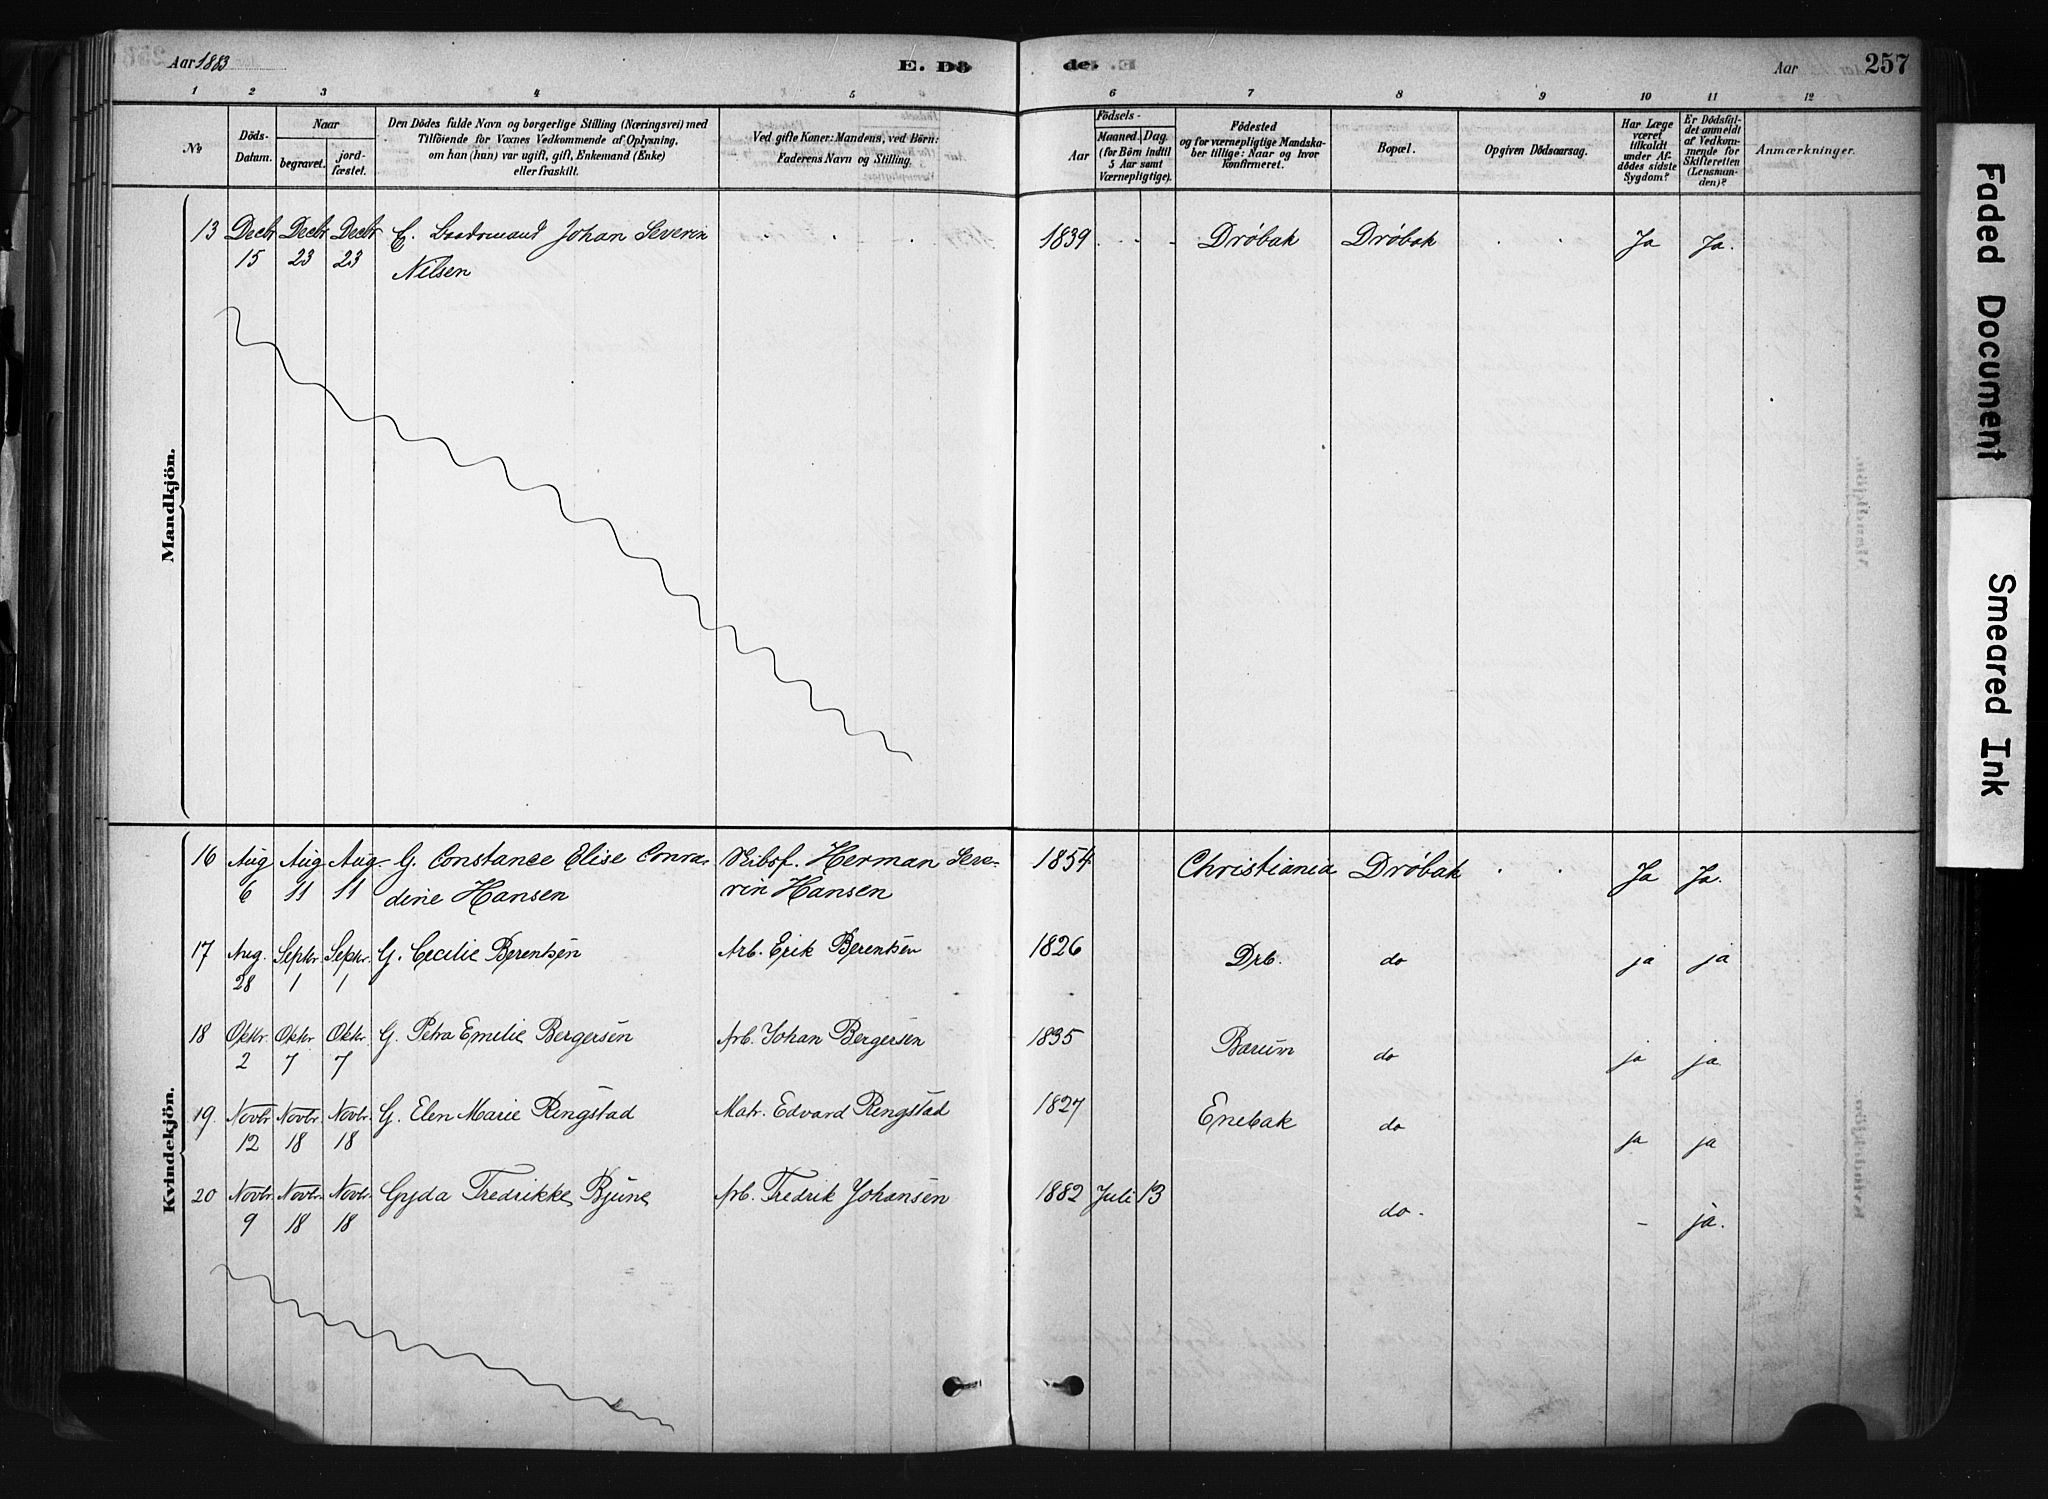 Aar 1883
E. Dö
de.
Aar
257
1 2 3 4 5 6 7 8 9 10 11 12
No
Döds-
Datum.
Naar
begravet.
jord-
fæstet.
Den Dödes fulde Navn og borgerlige Stilling (Næringsvei) med
Tilföiende for Voxnes Vedkommende af Oplysning,
om han (hun) var ugift, gift, Enkemand (Enke)
eller fraskilt.
Ved gifte Koner: Mandens, ved Börn:
Faderens Navn og Stilling.
Födsels-
Aar
Maaned.
Dag.
(for Börn indtil
5 Aar samt
Værnepligtige).
Födested
og for værnepligtige Mandska-
ber tillige: Naar og hvor
konfirmeret.
Bopæl.
Opgiven Dödsaarsag.
Har Læge
været
tilkaldt
under Af-
dödes sidste
Sygdom?
Er Dödsfal-
det anmeldt
af Vedkom-
mende for
Skifteretten
(Lensman-
den)?
Anmærkninger.
Mandkjön.
13 Decbr Decbr Decbr E. Johan Severin 1839 Dröbak Dröbak Ja Ja.
15 23 23 Nilsen
Kvindekjön.
16 Aug Aug Aug. G. Constance Elise Conra- Skibsf. Herman Seve- 1854 Christiania Dröbak Ja Ja.
6 11 11 dine Hansen rin Hansen
17 Aug. Septbr. Septbr. G. Cecilie Berentsen Arb. Erik Berentsen 1826 Drb. do ja ja
28 1 1
18 Oktbr. Oktbr. Oktbr. G. Petra Emilie Bergersen Arb. Johan Bergersen 1835 Barüm do ja ja
2 7 7
19. Novbr. Novbr. Novbr. G. Elen Marie Ringstad Matr. Edvard Ringstad 1827 Enebak do ja ja
12 18 18
20 Novbr. Novbr. Novbr. Gyda Fredrikke Bjüne Arb. Fredrik Johansen 1882 Juli 13 do - ja.
9 18 18
Faded Document
Smeared Ink